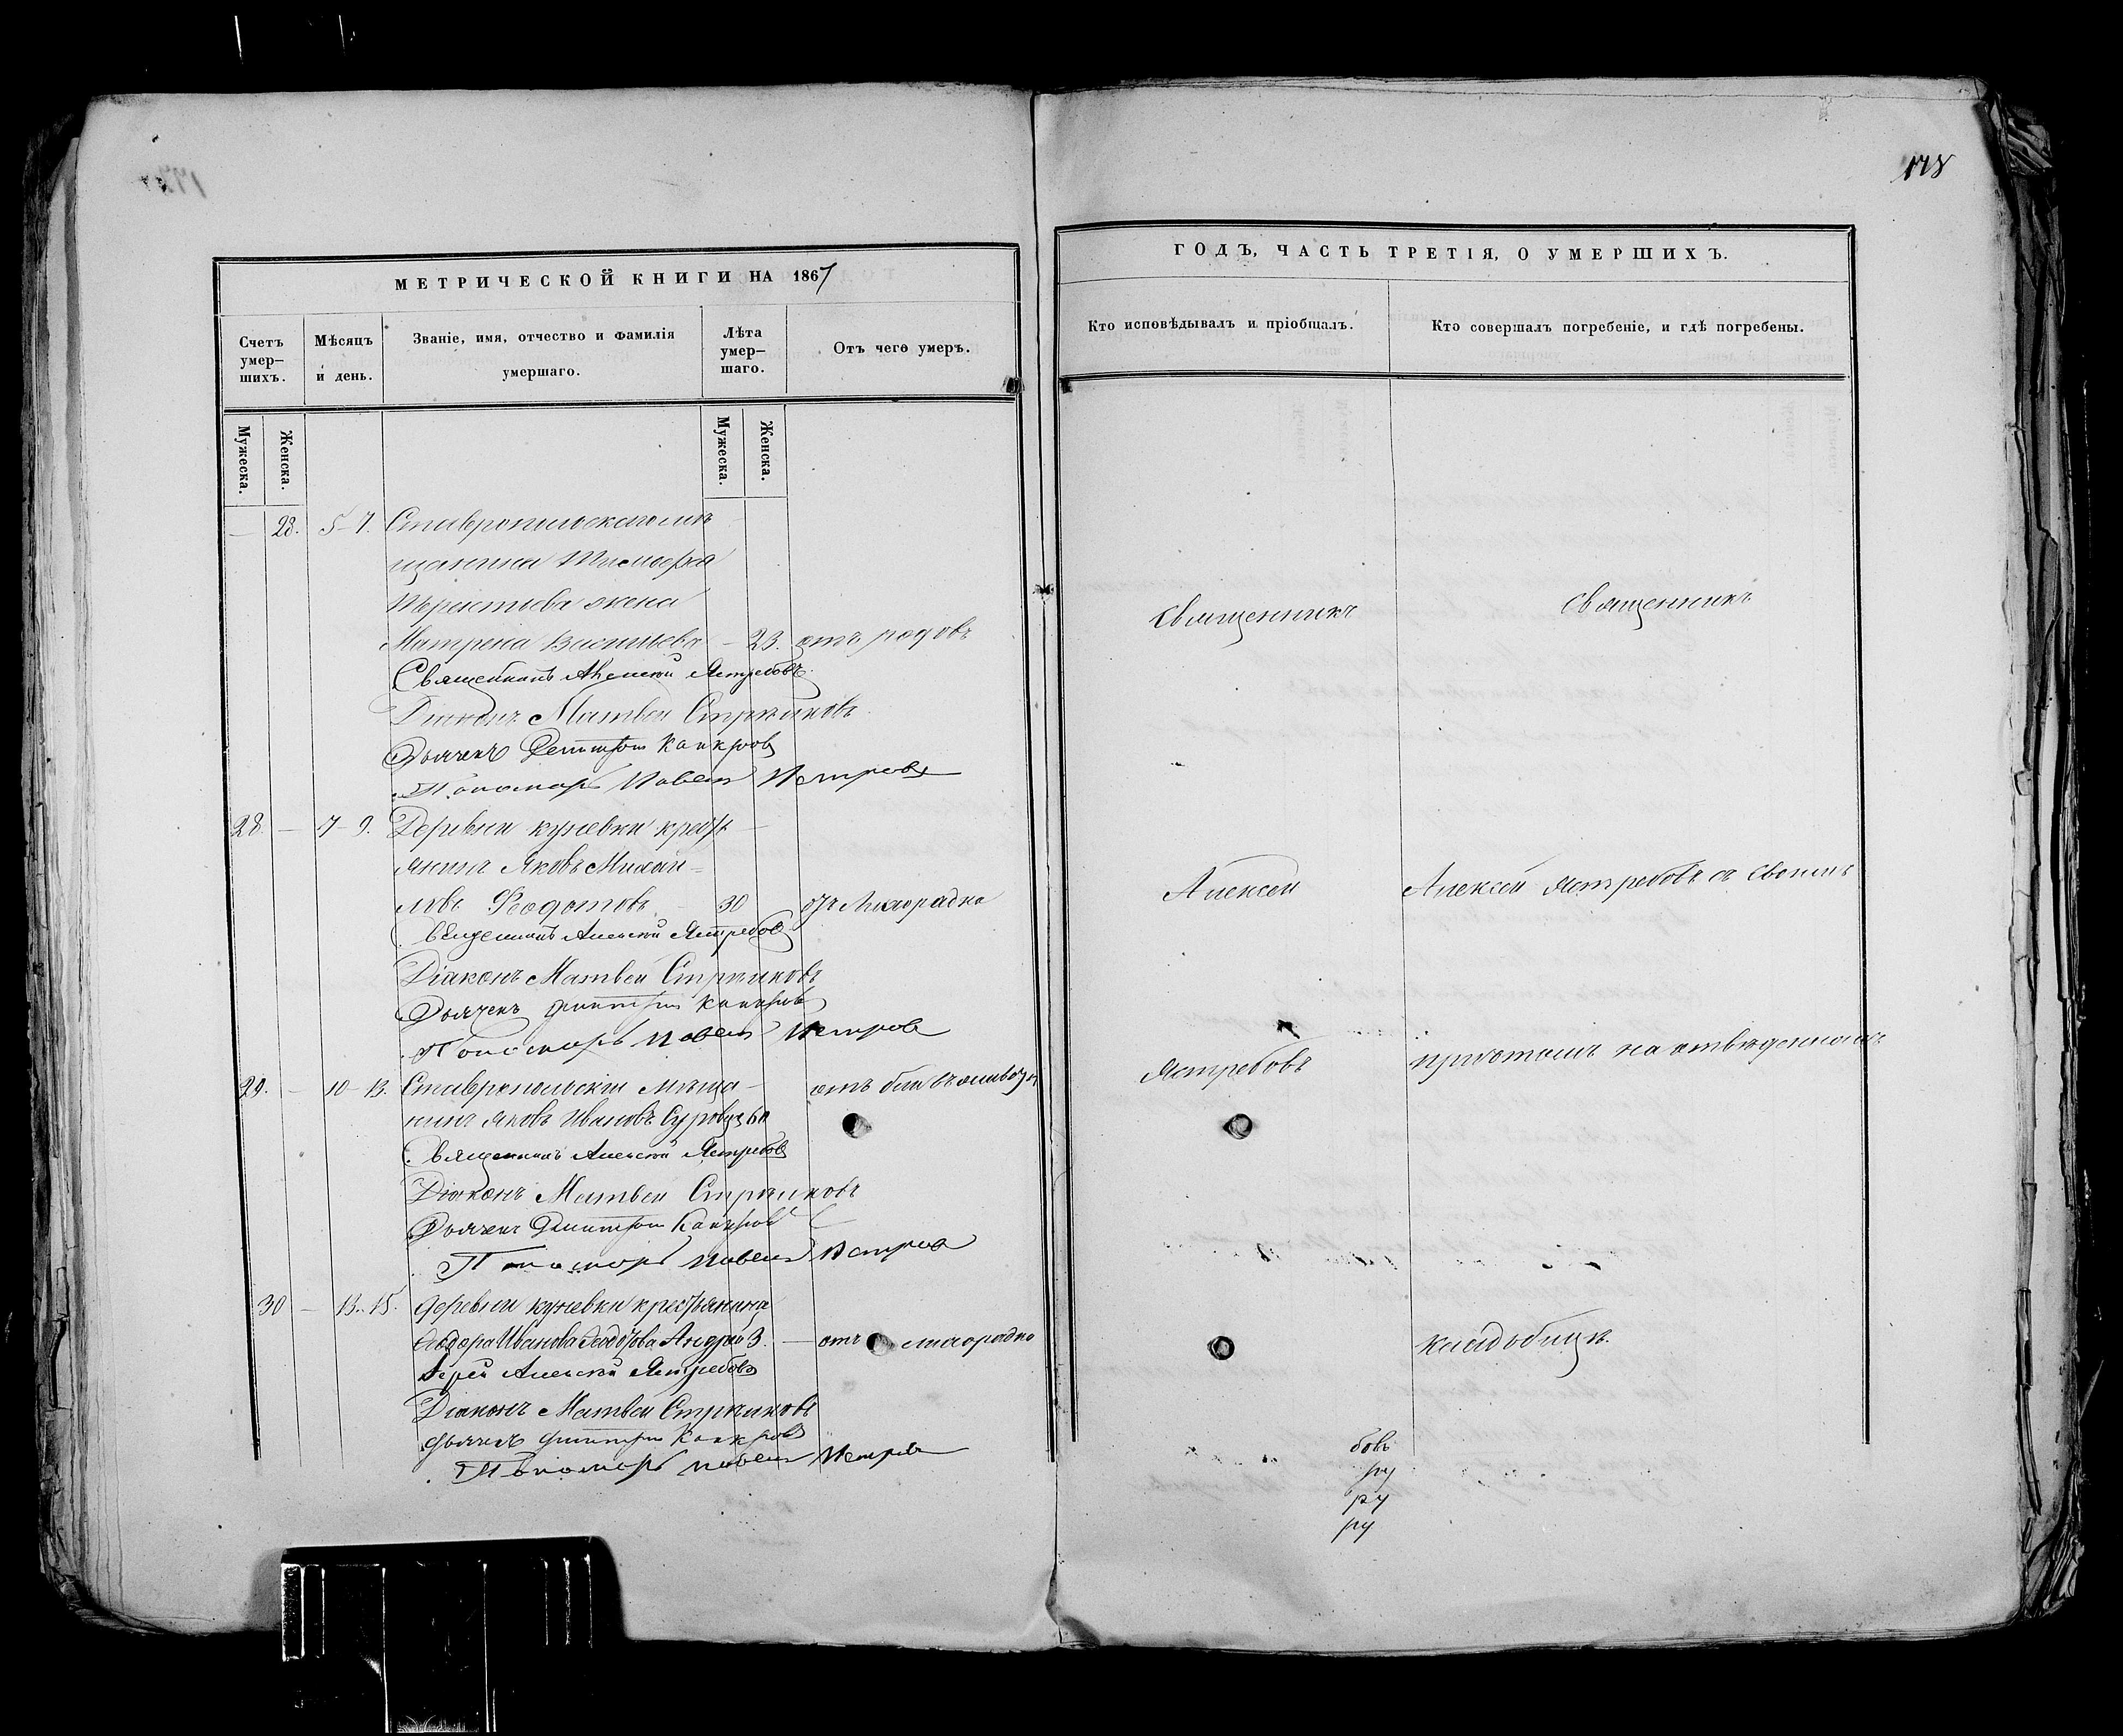 178
МЕТРИЧЕСКОЙ КНИГИ НА 1867
Счетъ умер–шихъ.
Мѣсяцъ и день.
Званіе, имя, отчество и фамилія умершаго.
Лѣта умер–шаго.
Отъ чего умеръ.
Мужеска.
Женска.
Мужеска.
Женска.
— 28. 5–7. Ставропольскаго мѣ
щанина Тимофея
жена
Матрена Васильева – 23. отъ родовъ
Священникъ Алексѣй Ястребовъ
Діаконъ Матвей Стрѣлковъ
Дьячекъ Димитрій
Пономарь Павелъ Петровъ
28 — 7–9. Деревни Кунеевки крестъ
янинъ Яковъ Михай–
ловъ Феодотовъ 30 отъ Лихорадки
Священникъ Алексѣй Ястребовъ
Діаконъ Матвей Стрѣлковъ
Дьячекъ Димитрій
Пономарь Павелъ Петровъ
29. — 10–13. Ставропольскій мѣща–
нинъ Яковъ Ивановъ 60 отъ
Священникъ Алексѣй Ястребовъ
Діаконъ Матвей Стрѣлковъ
Дьячекъ Димитрій
Пономарь Павелъ Петровъ
30 — 13–15. деревни Кунеевки крестьянина
Иванова Андрей 3. — отъ лихорадки
Іерей Алексѣй Ястребовъ
Діаконъ Матвей Стрѣлковъ
дьячекъ Димитрій
Пономарь Павелъ Петровъ
ГОДЪ, ЧАСТЬ ТРЕТІЯ, О УМЕРШИХЪ.
Кто исповѣдывалъ и пріобщалъ.
Кто совершалъ погребеніе, и гдѣ погребены.
Священникъ
Алексѣй
Ястребовъ
Священникъ
Алексѣй Ястребовъ съ своимъ
причтомъ на отведенномъ
кладбищѣ.
бовъ
ру
ру
ру